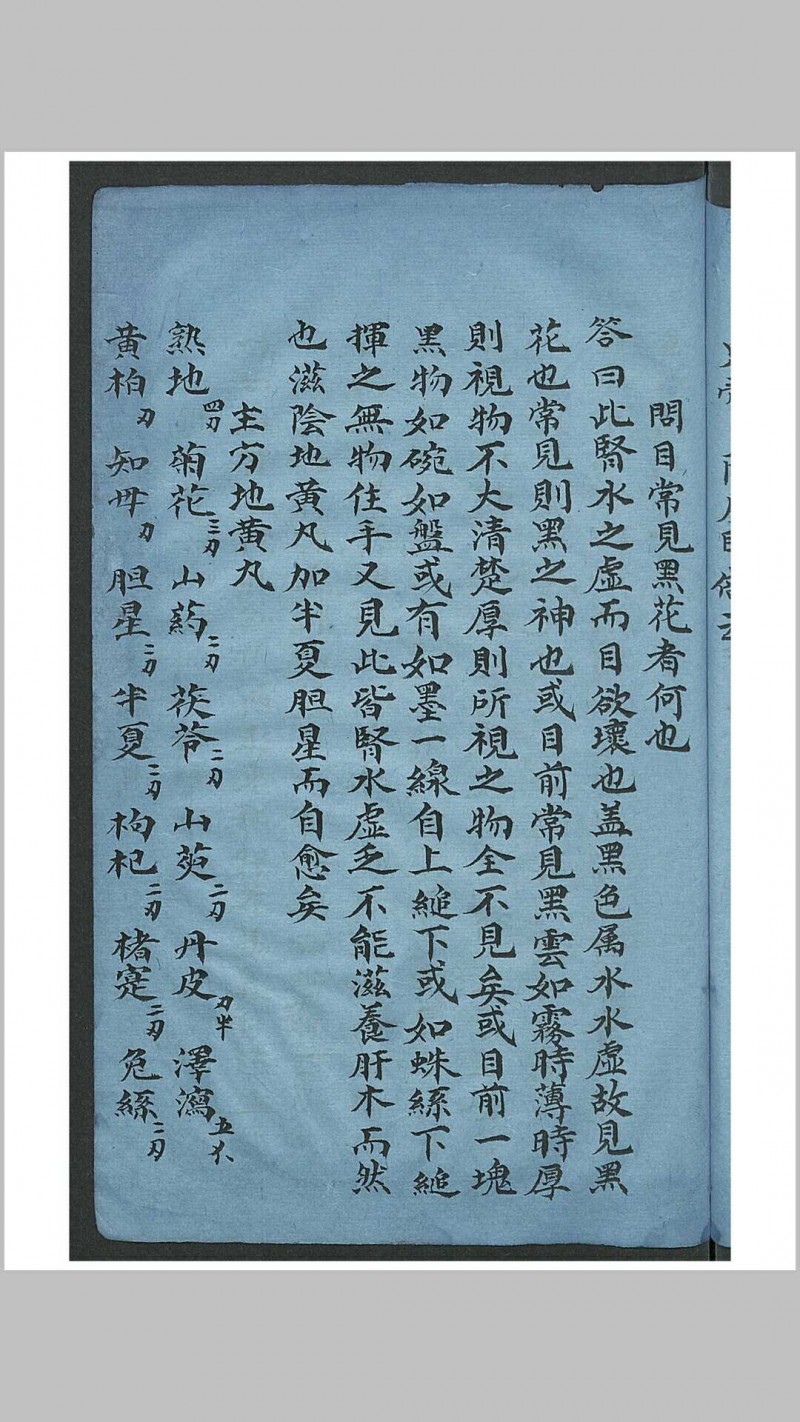 問目常見黑花者何也
答曰此腎水之虛而目欲壞也盖黑色属水水虛故見黑
花也常見則黑之神也或目前常見黑雲如霧時薄時厚
則視物不大清楚厚則所視之物全不見矣或目前一塊
黑物如碗如盤或有如墨一線自上縋下或如蛛絲下縋
揮之無物住手又見此皆腎水虛乏不能滋養肝木而然
也滋陰地黃丸加半夏胆星而自愈矣
主方地黃丸
熟地四刃 菊花三刃 山药二刃 茯苓二刃 山萸二刃 丹皮刃半 澤瀉五
黃柏刃 知母刃 胆星二刃 半夏二刃 枸杞二刃 楮寔二刃 兔絲二刃